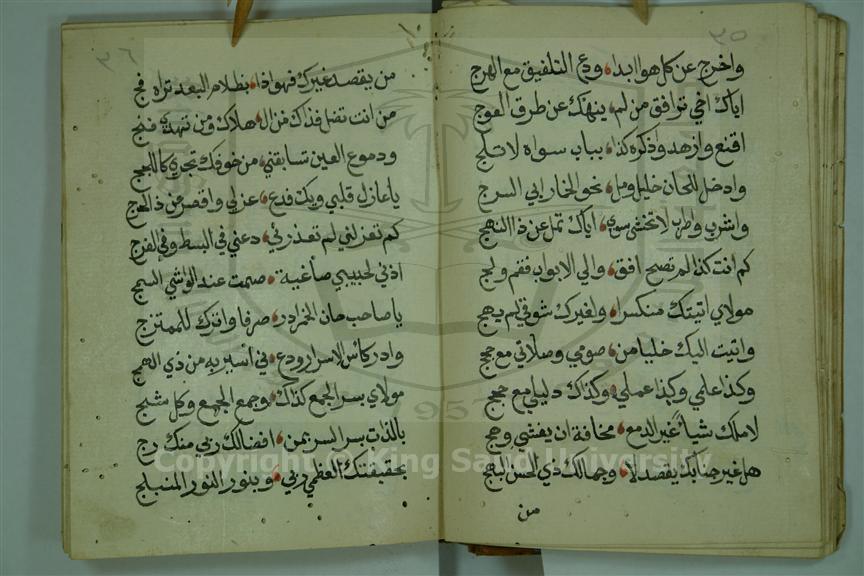 ٣٥
واخرج عن كل هوا ابدا ودع التلفيق مع الهرج
اياك اخي توافق من لم ينهك عن طرق العوج
اقنع وازهد واذكره كذا بباب سواه لا تلج
وادخل للحان خليل ومل نحو الخمار ابي السرج
واشرب واطرب لا تخشى سوى اياك تمل عن ذا النهج
كم انت كذا لم تصح افق والي الابواب فقم ولج
مولاي اتيتك منكسرا ولغيرك شوقي لم يهج
واتيت اليك خليا من صومي وصلاتي مع حجج
وكذا علمي وكذا عملي وكذاك دليلي مع حجج
لا املك شيأ غير الدمع مخافة ان يفشي وهج
هل غير جنابك يقصد لا وجمالك ذي الحسن البهج
من
٣٦
من يقصد غيرك فهو اذا بظلام البعد تراه فج
من انت تضل فذاك من ال هلاك ومن تهدي فنج
ودموع العين تسابقني من خوفك تجري كاللجج
يا عاذل قلبي ويك فدع عزلي واقصر من ذا الحرج
كم تعزلني لم تعذرني دعني في البسط وفي الفرج
اذني لحبيبي صاغية صمت عند الواشي السمج
يا صاحب حان الخمر ادر صرفا واترك للممتزج
وادر كاس الاسرار ودع ني أسير به من ذي الهمج
مولاي بسر الجمع كذاك وجمع الجمع وكل شج
بالذات بسر السر بمن افضالك ربي منك رج
بحقيقتك العظمي ربي وبنور النور المنبلج
Copyright © King Saud University
1957